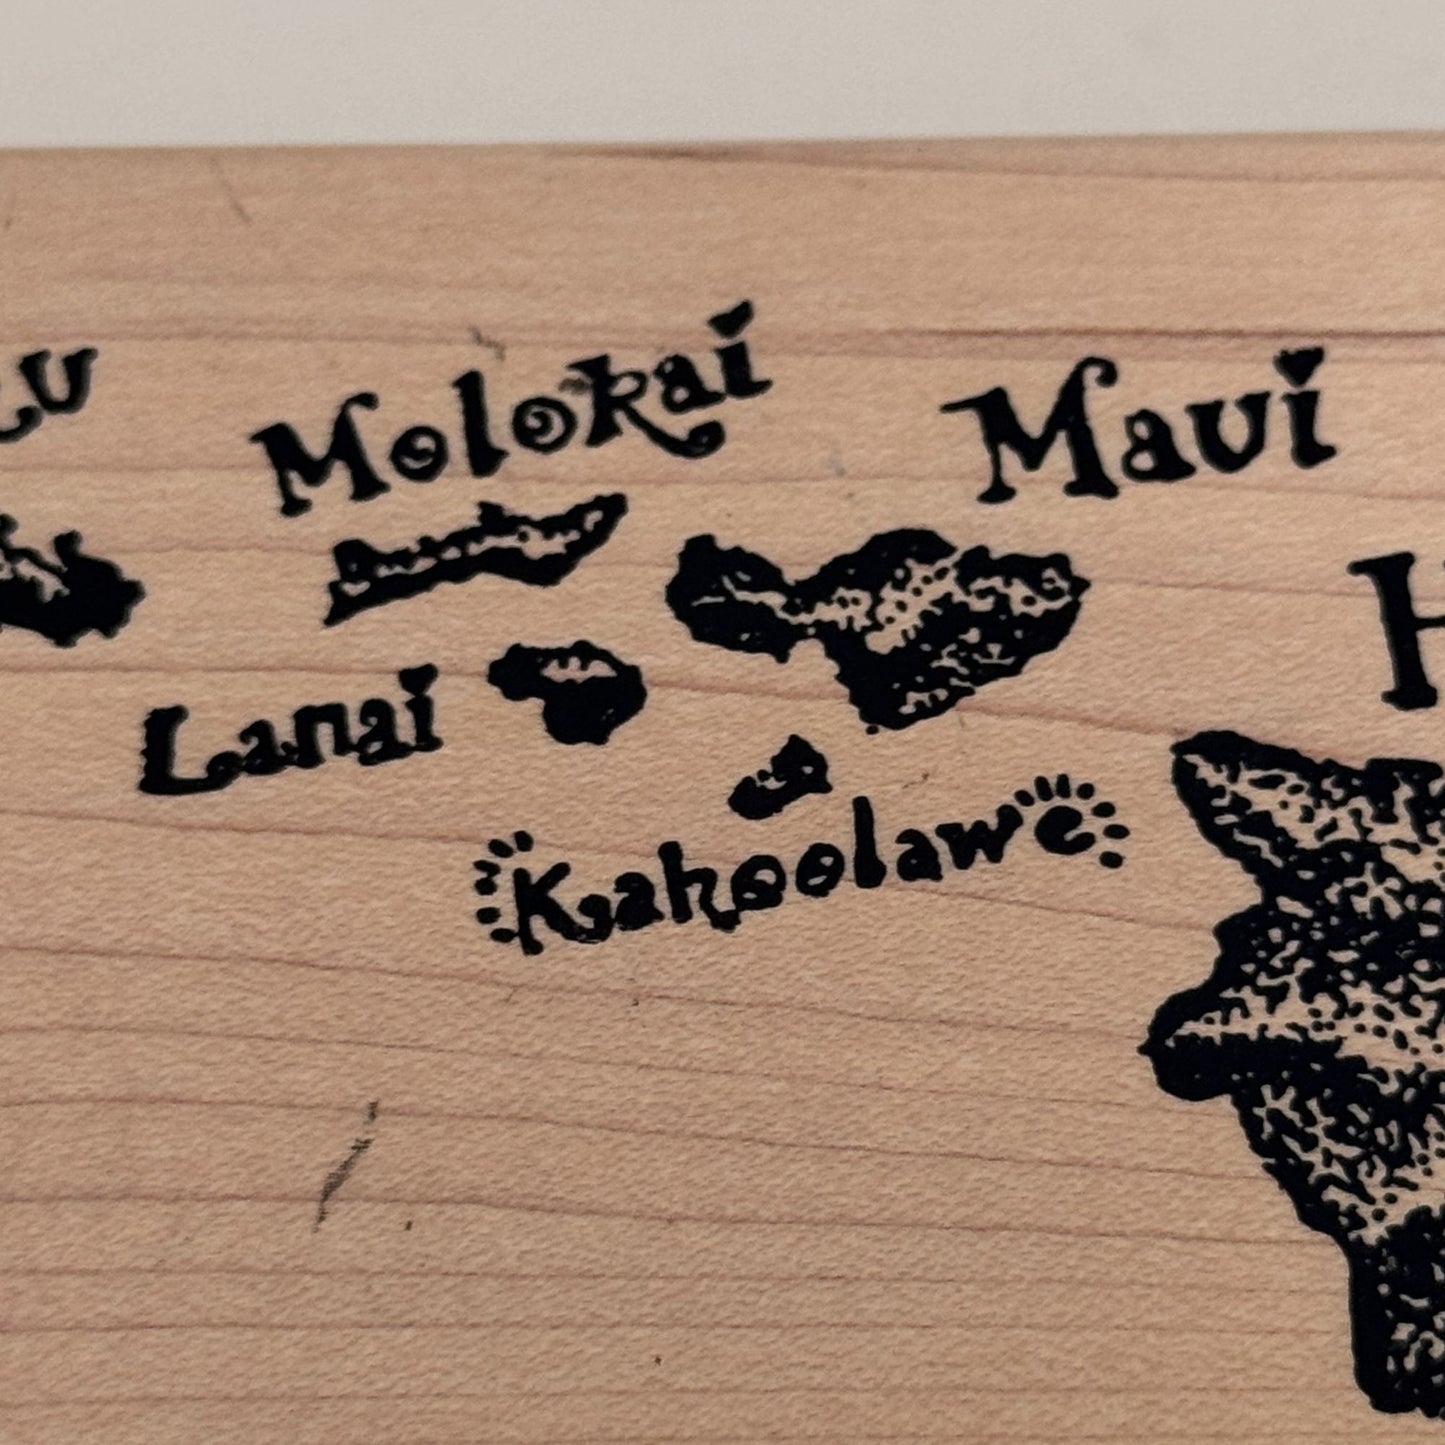 Molokai
Maui
Lanai
Kahoolawe